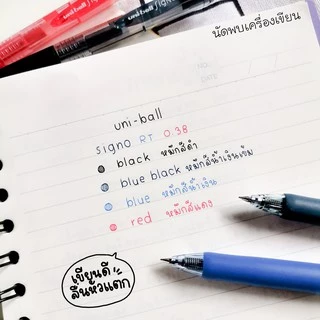 นัดพบเครื่องเขียน
uni-ball
signo RT 0.38
black หมึกสีดำ
blue black หมึกสีน้ำเงินเข้ม
blue หมึกสีน้ำเงิน
red หมึกสีแดง
เขียนดี
ลื่นหัวแตก